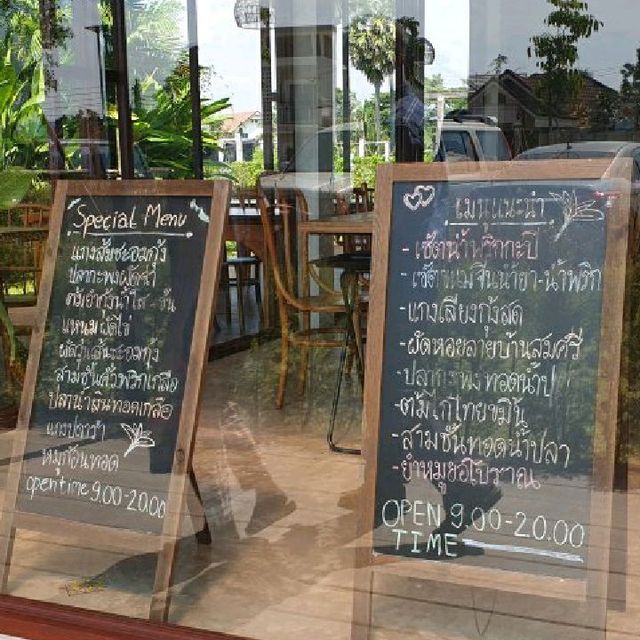 Special Menu
แกงส้มชะอมกุ้ง
ปลากะพงผัดฉ่า
แหนมผัดไข่
สามชั้นคั่วพริกเกลือ
ปลานิลทอดเกลือ
แกงป่า
หมูทอด
open time 9.00-20.00
เมนูแนะนำ
- เซ็ตน้ำพริกกะปิ
- เซ็ตขนมจีนน้ำยา-น้ำพริก
- แกงเลียงกุ้งสด
- ผัดหอยลายบ้านสมศรี
- ปลากะพงทอดน้ำปลา
- ต้มไก่ไทยขมิ้น
- สามชั้นทอดน้ำปลา
- ยำหมูยอโบราณ
OPEN 9.00-20.00
TIME